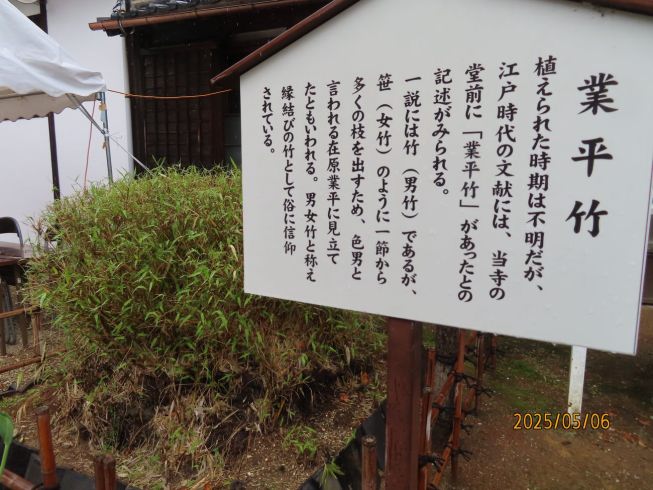 業平竹
植えられた時期は不明だが、
江戸時代の文献には、当寺の
堂前に「業平竹」があったとの
記述がみられる。
一説には竹（男竹）であるが、
笹（女竹）のように一節から
多くの枝を出すため、色男と
言われる在原業平に見立て
たともいわれる。男女竹と称え
縁結びの竹として俗に信仰
されている。
2025/05/06